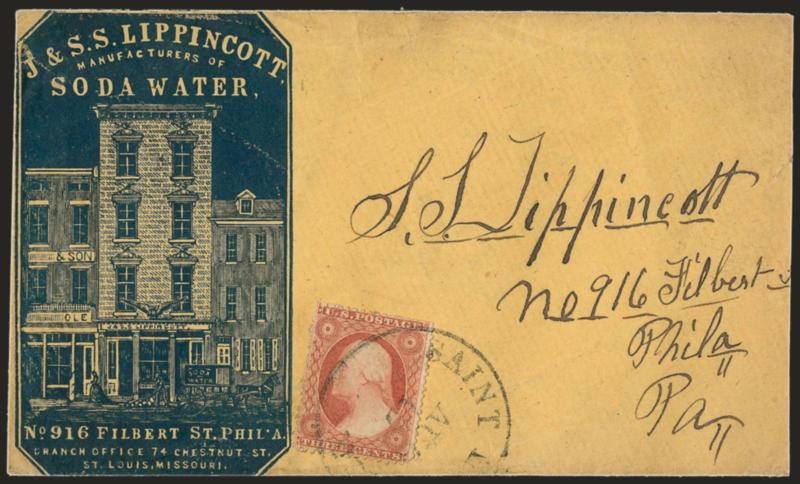 J. & S.S. LIPPINCOTT,
MANUFACTURERS OF
SODA WATER,
& SON
OLE
J. & S.S. LIPPINCOTT.
SODA
WATER
No 916 FILBERT ST. PHIL'A.
BRANCH OFFICE 74 CHESTNUT ST.
ST. LOUIS, MISSOURI.
S. S. Lippincott
No 916 Filbert
Phila
Pa
U.S. POSTAGE
THREE CENTS
SAINT